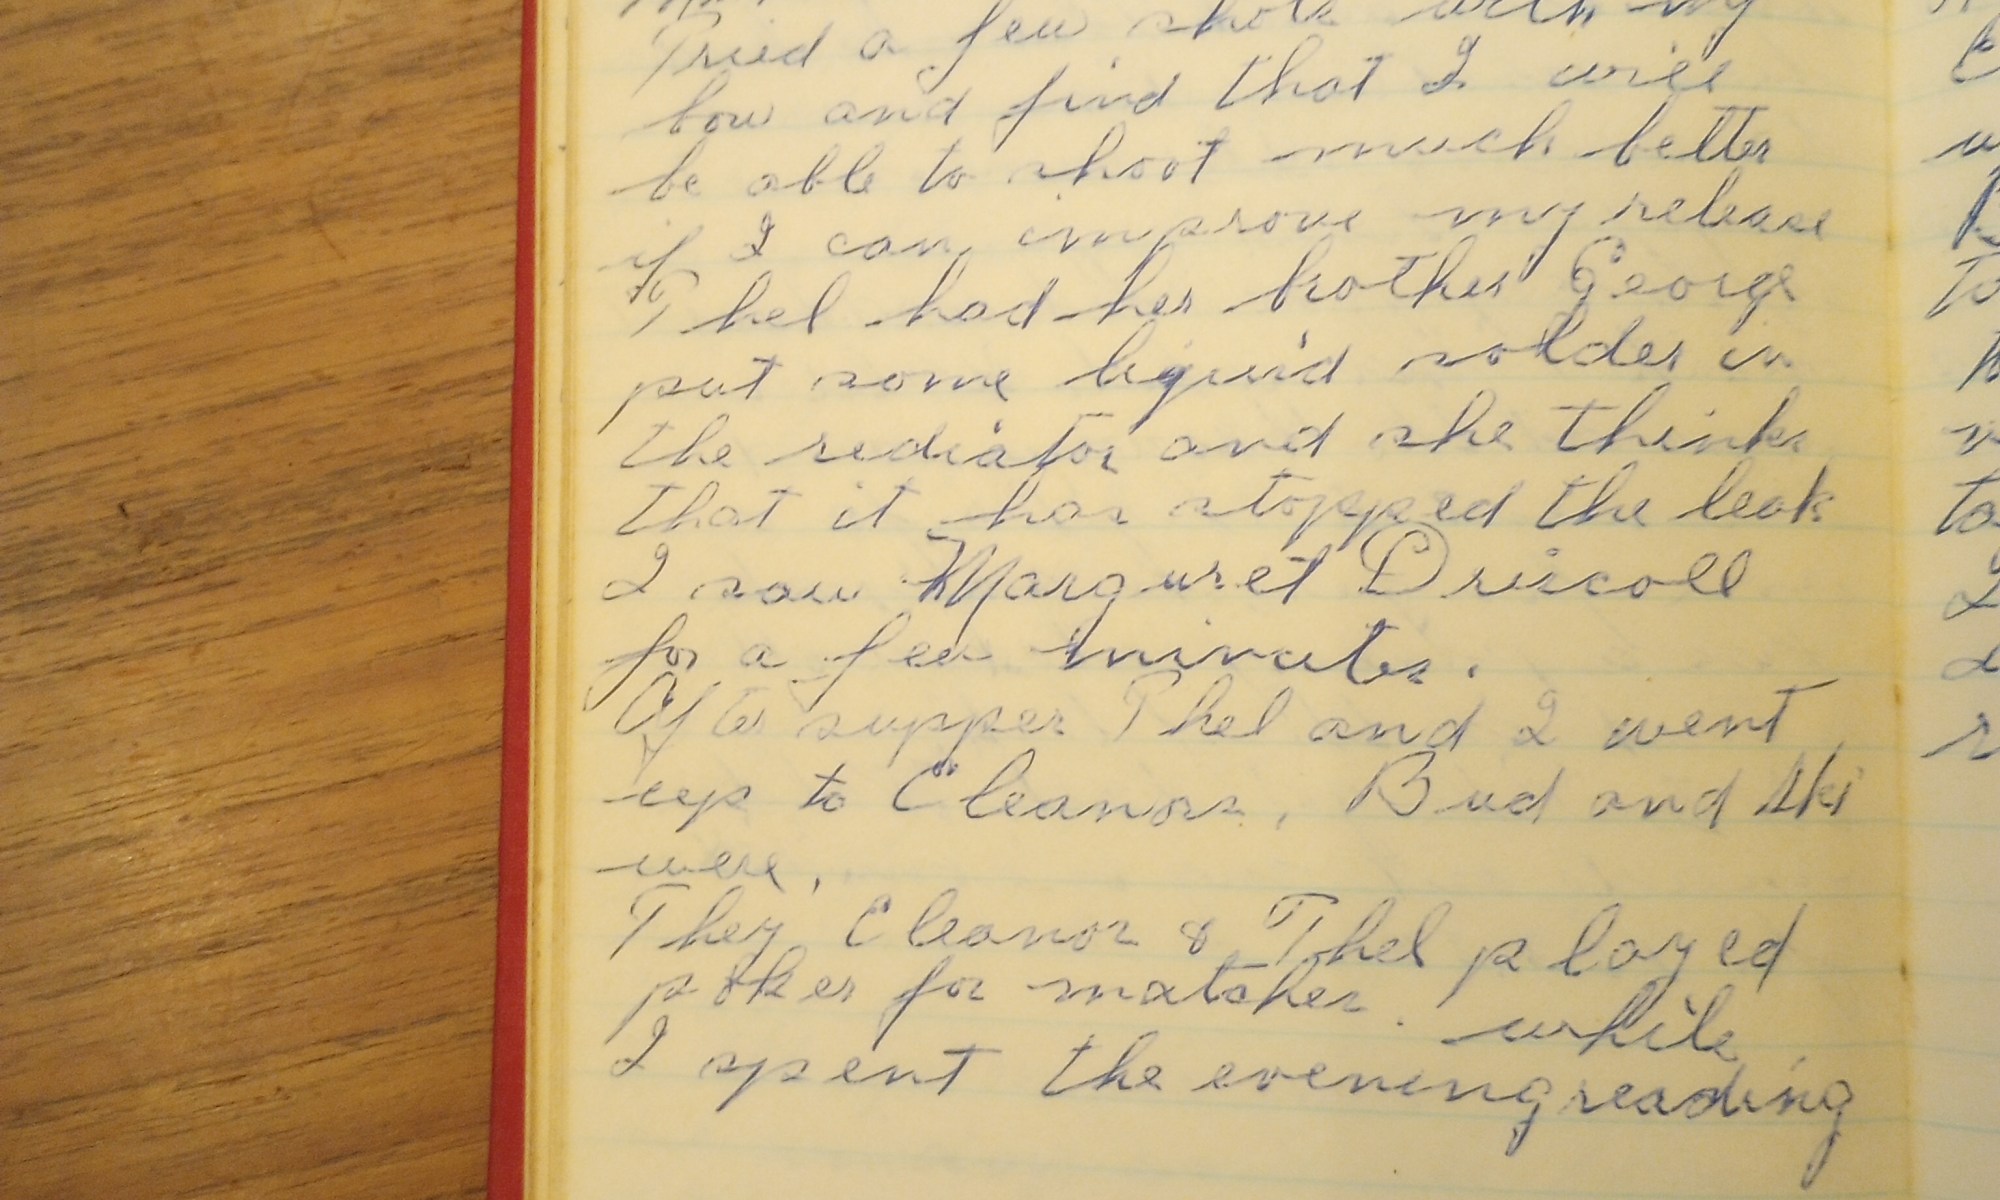 Tried a few shots with my
bow and find that I will
be able to shoot much better
if I can improve my release
Thel had her brother George
put some liquid solder in
the rediator and she thinks
that it has stopped the leak
I saw Marguret Driscoll
for a few minutes.
After supper Thel and I went
up to Eleanors, Bud and Ski
were,
They, Eleanor & Thel played
poker for matches. while
I spent the evening reading